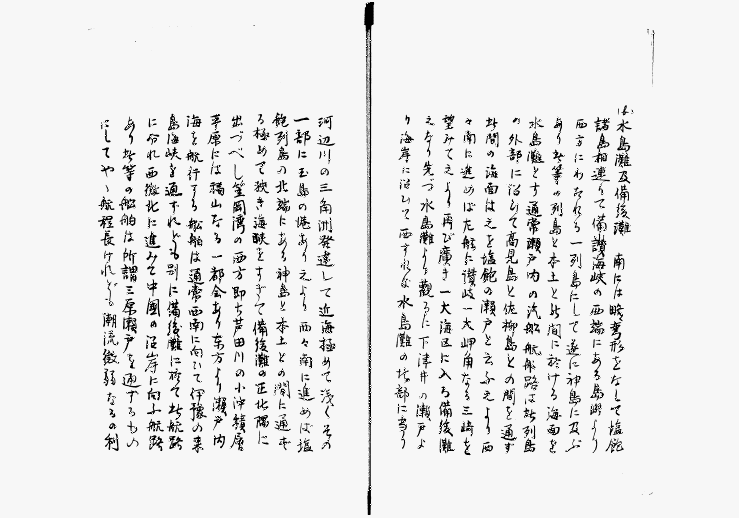 水島灘及備後灘　南には略弯形をなして塩飽
諸島相連りて備讃海峡の西端にある島嶼より
西方にわかれる一列島にして遂に神島に及ぶ
あり此等の列島と本土と此間に於ける海面を
水島灘とす通常瀬戸内の汽船航船路は此列島
の外部に沿ひて高見島と佐柳島との間を通ず
此間の海面は之を塩飽の瀬戸と云ふ之より西
々南に進めば左舷に讃岐一大岬角なる三崎を
望みて之より再び廣き一大海区に入る備後灘
之なり先づ水島灘より觀るに下津井の瀬戸よ
り海岸に沿ひて西すれば水島灘の北部に当り
河辺川の三角洲発達して近海極めて浅くその
一部に玉島の港あり之より西々南に進めば塩
飽列島の北端にある神島と本土との間に通ず
る極めて狭き海峡をすぎて備後灘の正北隅に
出づべし笠岡湾の西方即ち芦田川の小沖積層
平原には福山なる一都会あり东方より瀬戸内
海を航行する船舶は通常西南に向いて伊豫の来
島海峡を通すれども別に備後灘に於て此航路
に分れ西微北に進みて中國の沿岸に向ふ航路
あり此等の船舶は所謂三原瀬戸を通するもの
にしてやゝ航程長けれども潮流微弱なるの利